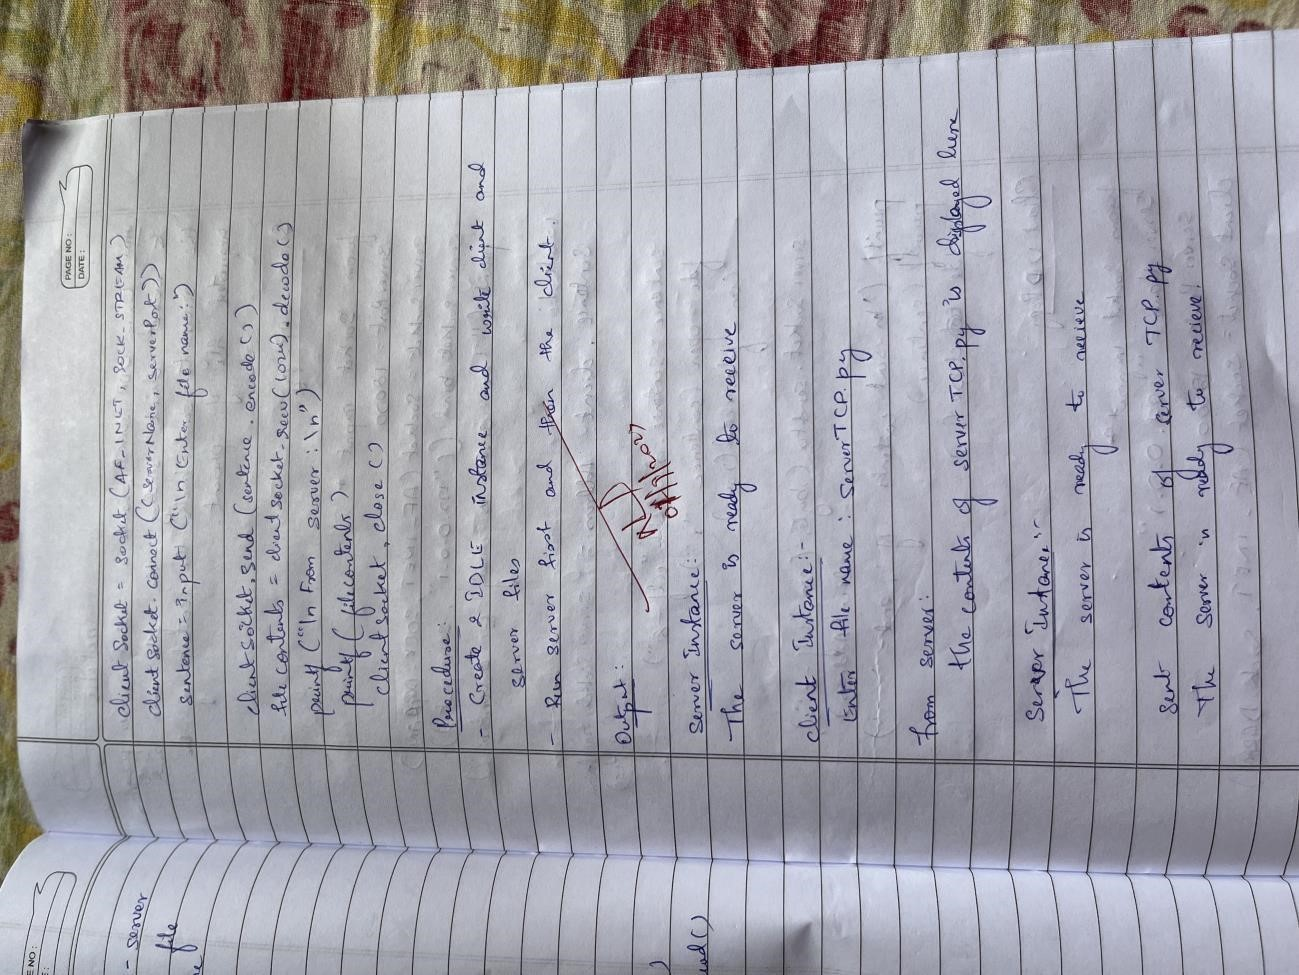 PAGE NO:
DATE:
client Socket = socket (AF-INET, SOCK-STREAM)
client socket. connect ((serverName, serverPort))
sentence = input ("\n Enter file name:")
client socket. send (sentence. encode ())
file contents = client socket. recv (1024). decode ()
print ("\n From server : \n")
print (filecontents)
client socket. close ()
Procedure:
- Create 2 IDLE instance and write client and
server files
- Run server first and then the client.
Output:
Server Instance:
The server is ready to receive
Client Instance:-
Enter file name : serverTCP.py
From server:
the contents of server TCP.py is displayed here
Server Intance:-
The server is ready to recieve
Sent contents of server TCP.py
The server is ready to recieve.
- server
file